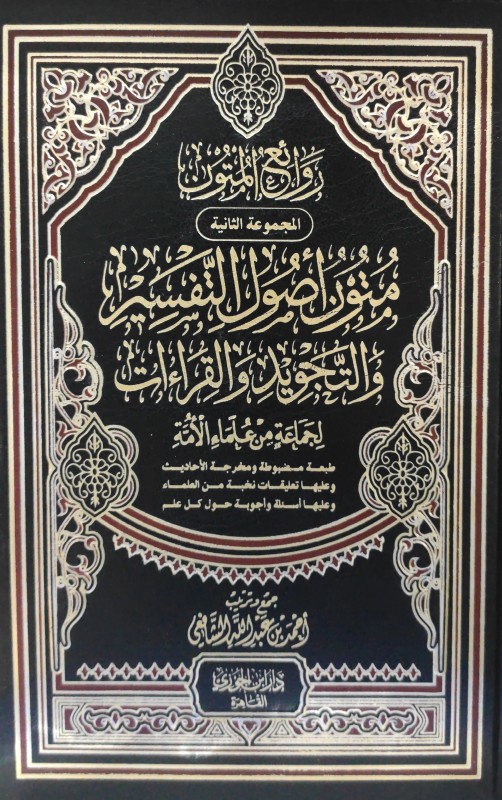 روائع المتون
المجموعة الثانية
متون أصول التفسير
والتجويد والقراءات
لجماعة من علماء الأمة
طبعة مضبوطة ومخرجة الأحاديث
وعليها تعليقات نخبة من العلماء
وعليها أسئلة وأجوبة حول كل علم
جمع وترتيب
أحمد بن عبد الله الشافعي
دار ابن الجوزي
القاهرة